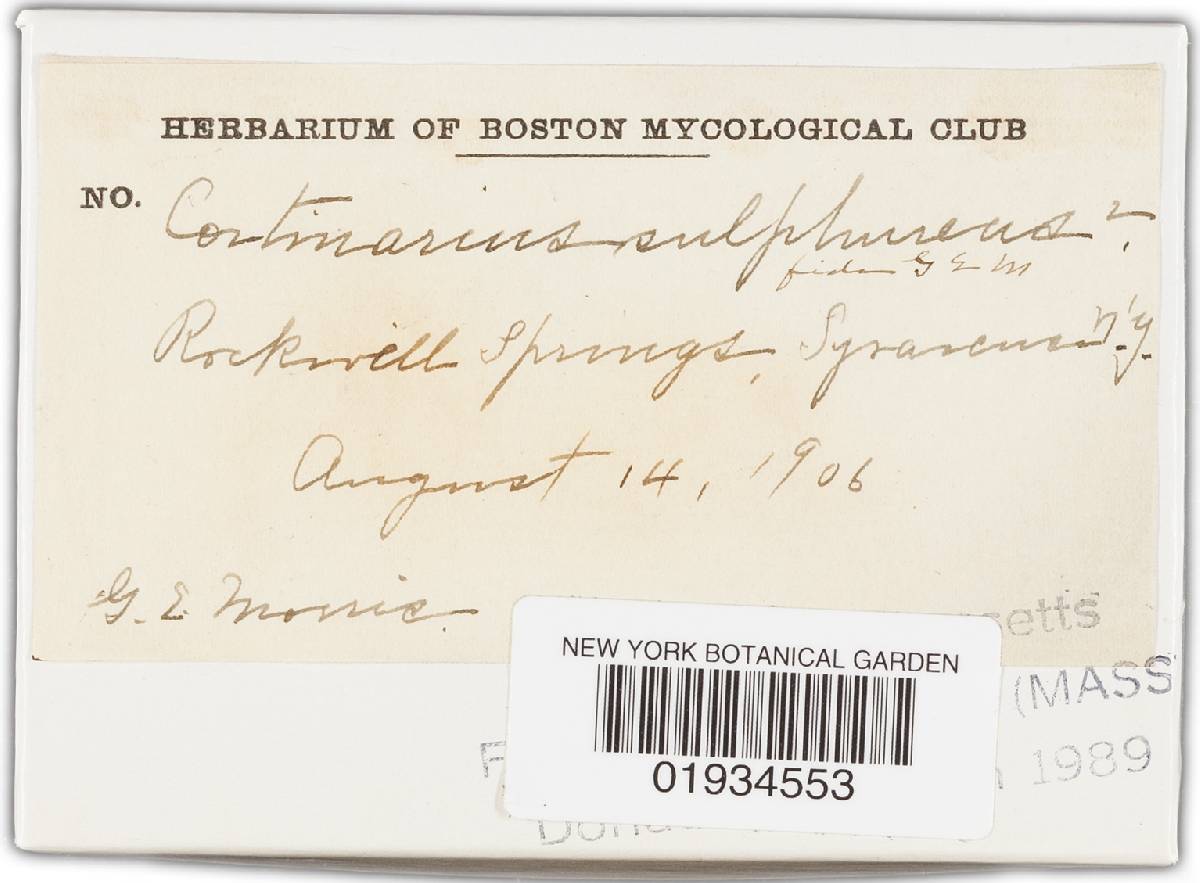 HERBARIUM OF BOSTON MYCOLOGICAL CLUB
NO. Cortinarius sulphureus?
fide G E M
Rockwell Springs, Syracuse N.Y.
August 14, 1906
G. E. Morris.
setts
(MASS
1989
NEW YORK BOTANICAL GARDEN
01934553